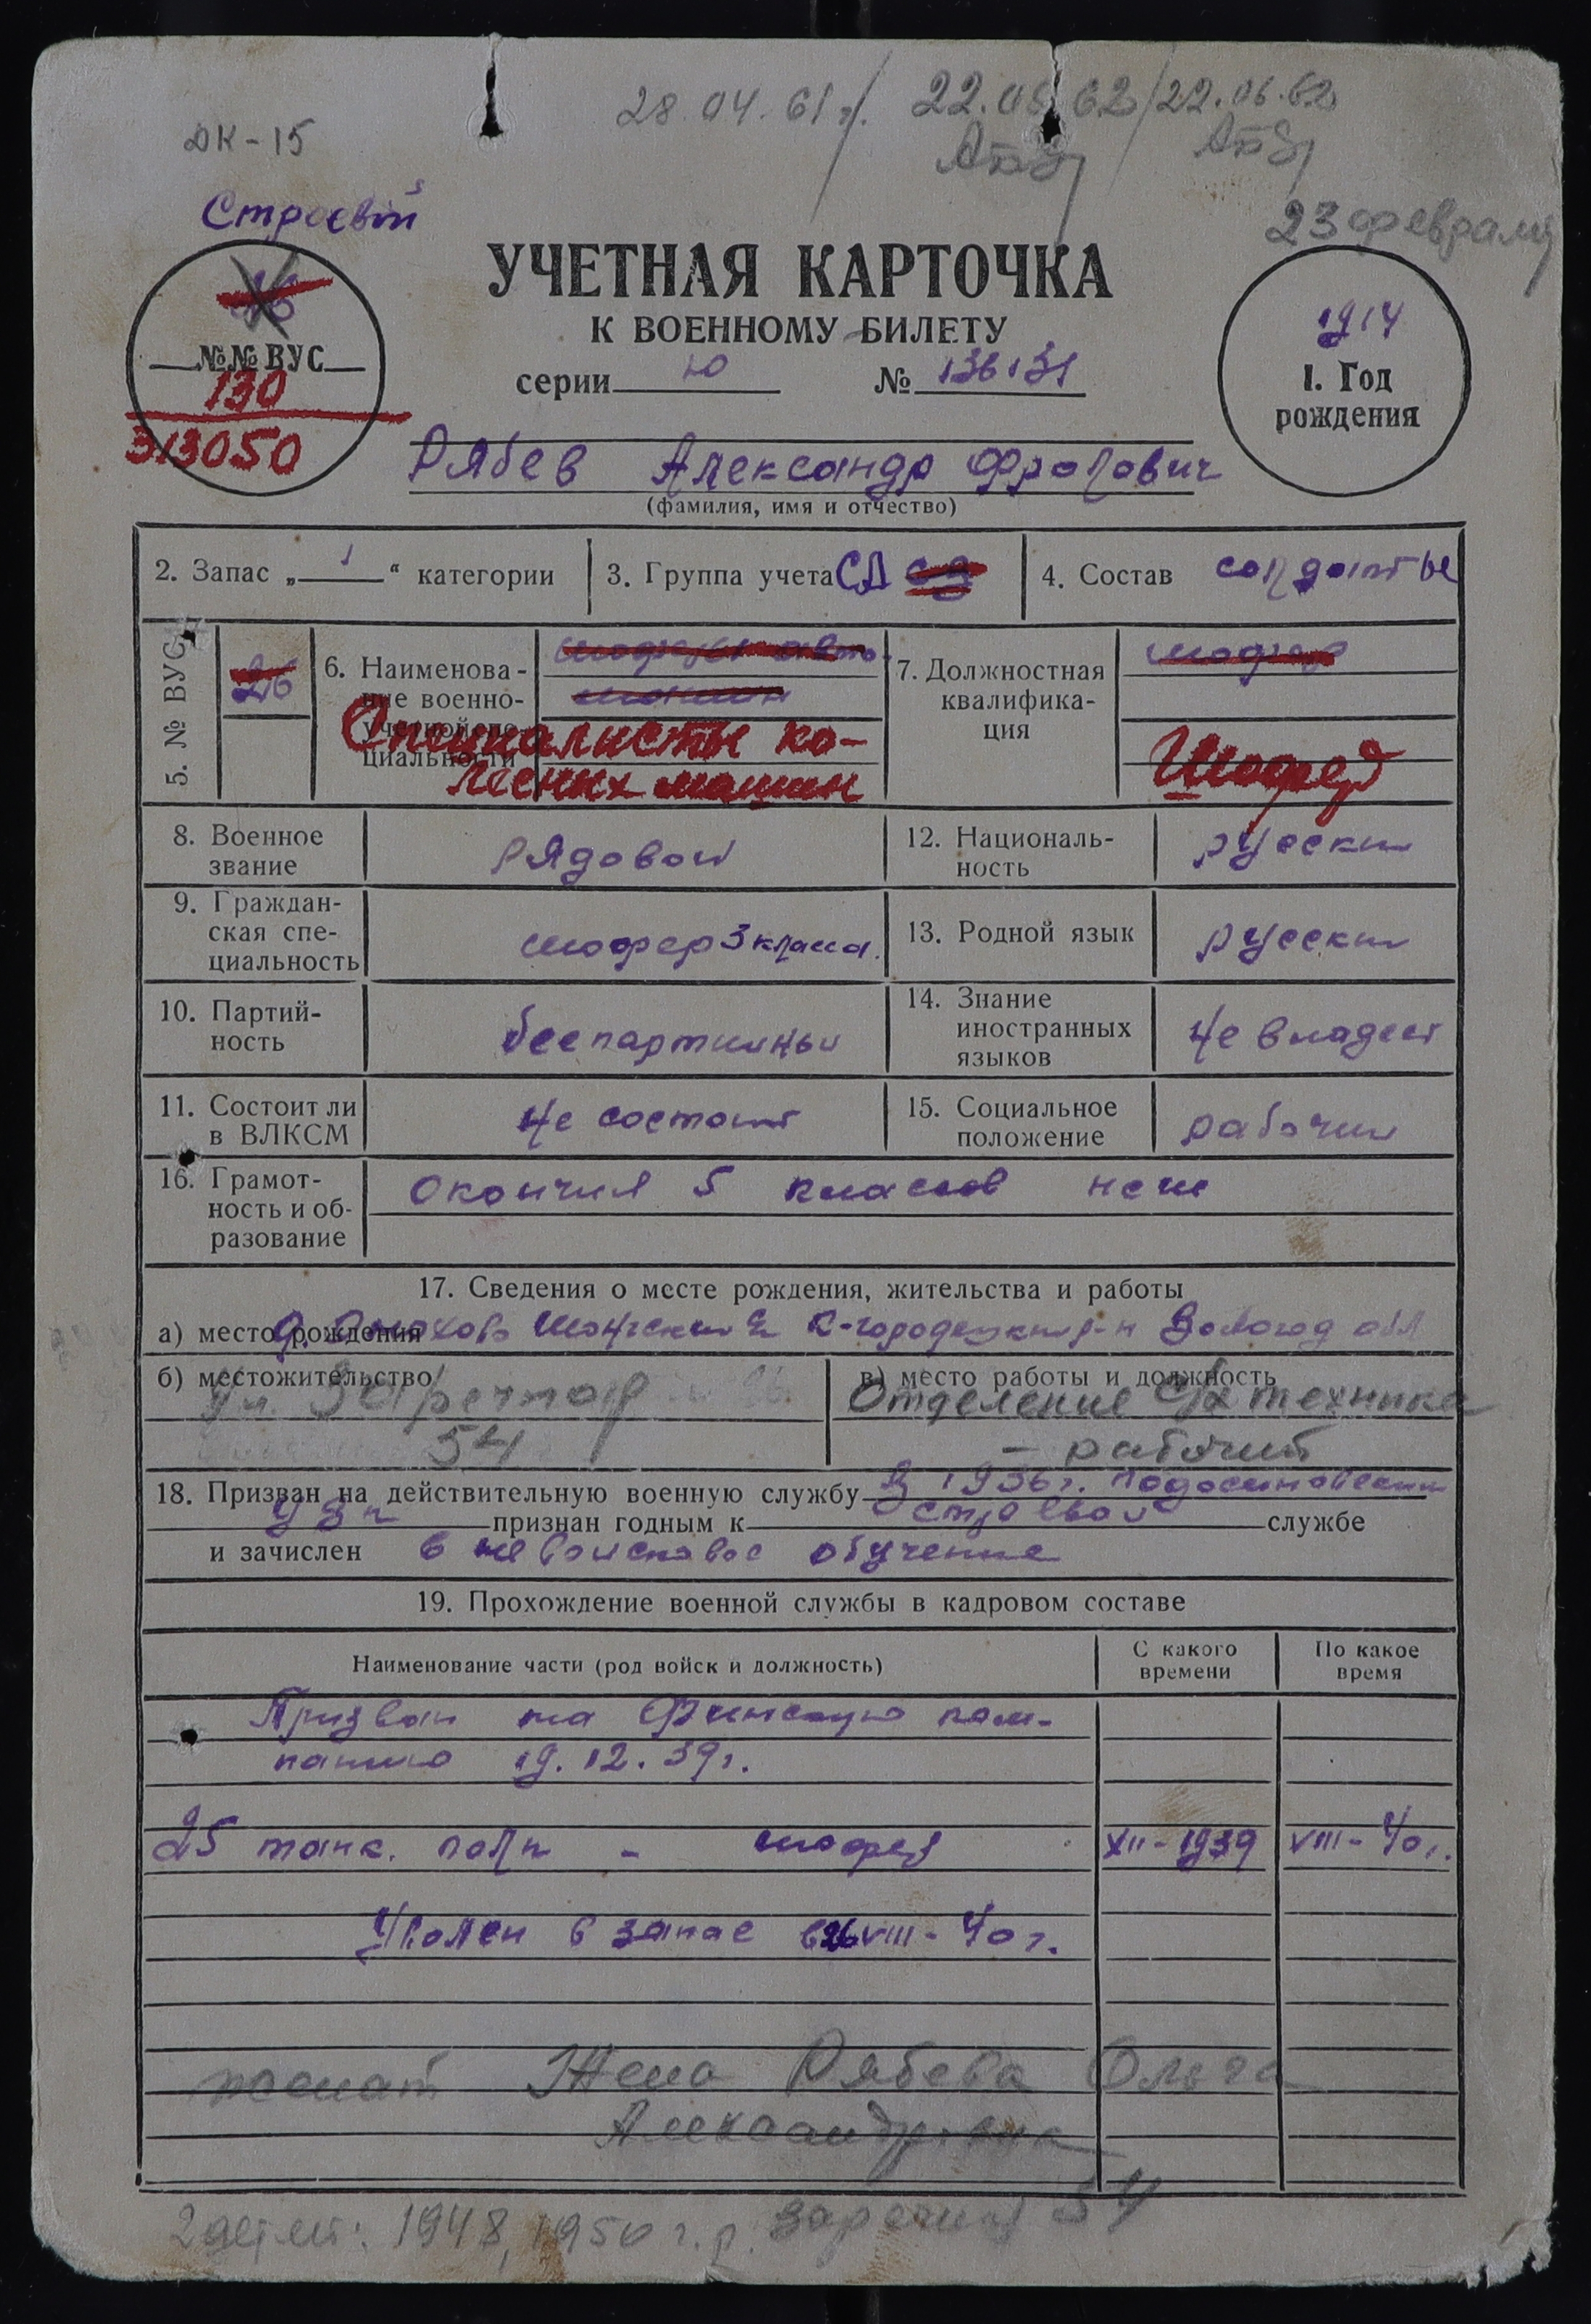 28.04.61г. / 22.05.62 / 22.06.62
ДК-15
Строевой
23 февраля
УЧЕТНАЯ КАРТОЧКА
К ВОЕННОМУ БИЛЕТУ
серии Ю № 136131
№№ ВУС
130
313050
1914
1. Год
рождения
Рябев Александр Фролович
(фамилия, имя и отчество)
2. Запас „ 1 “ категории
3. Группа учета СА
4. Состав солдаты
5. № ВУС
26
6. Наименова-
ние военно-
учетной спе-
циальности
шоферы авто
машин
Специалисты ко-
лесных машин
7. Должностная
квалифика-
ция
шофер
Шофер
8. Военное
звание
рядовои
12. Националь-
ность
русски
9. Граждан-
ская спе-
циальность
шофер 3 класса.
13. Родной язык
русски
10. Партий-
ность
беспартиины
14. Знание
иностранных
языков
не владеет
11. Состоит ли
в ВЛКСМ
не состоит
15. Социальное
положение
рабочии
16. Грамот-
ность и об-
разование
окончил 5 классов
17. Сведения о месте рождения, жительства и работы
а) место рождения К-городецкий р-н Вологод обл
б) местожительство
ул. Заречная
54
в) место работы и должность
Отделение с/х техника
– рабочий
18. Призван на действительную военную службу в 1936г. Подосиновским
признан годным к строевои службе
и зачислен в невоисковое обучение
19. Прохождение военной службы в кадровом составе
Наименование части (род войск и должность)
С какого
времени
По какое
время
Призван на Финскую кам-
панию 19.12.39г.
25 танк. полк – шофер XII-1939 VIII-40г.
Уволен в запас 26 VIII-40 г.
женат Жена Рябева Ольга
Александровна
2 детей: 1948, 1950 г.р. Заречная 54